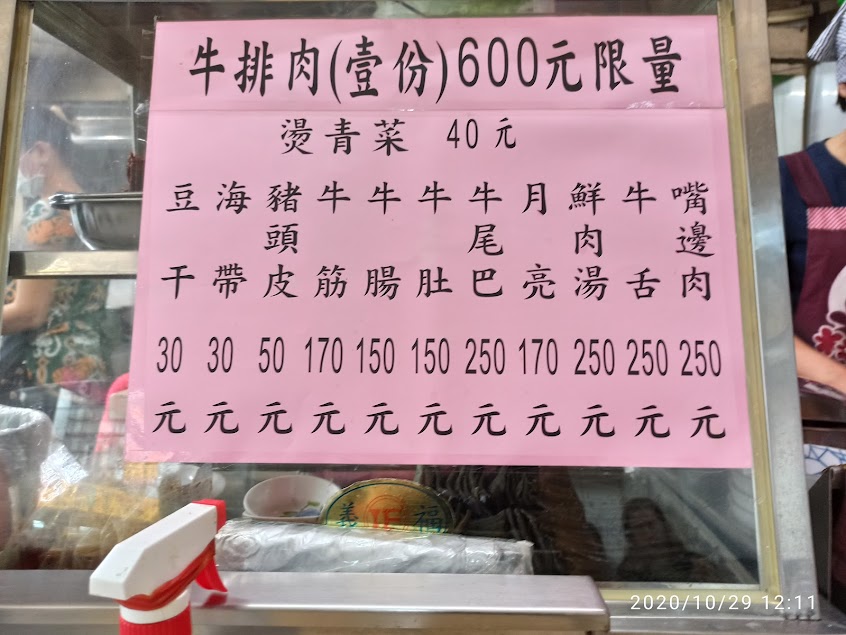 牛排肉(壹份)600元限量
燙青菜 40元
嘴邊肉 250元
牛舌 250元
鮮肉湯 250元
月亮 170元
牛尾巴 250元
牛肚 150元
牛腸 150元
牛筋 170元
豬頭皮 50元
海帶 30元
豆干 30元
義 IF 福
2020/10/29 12:11